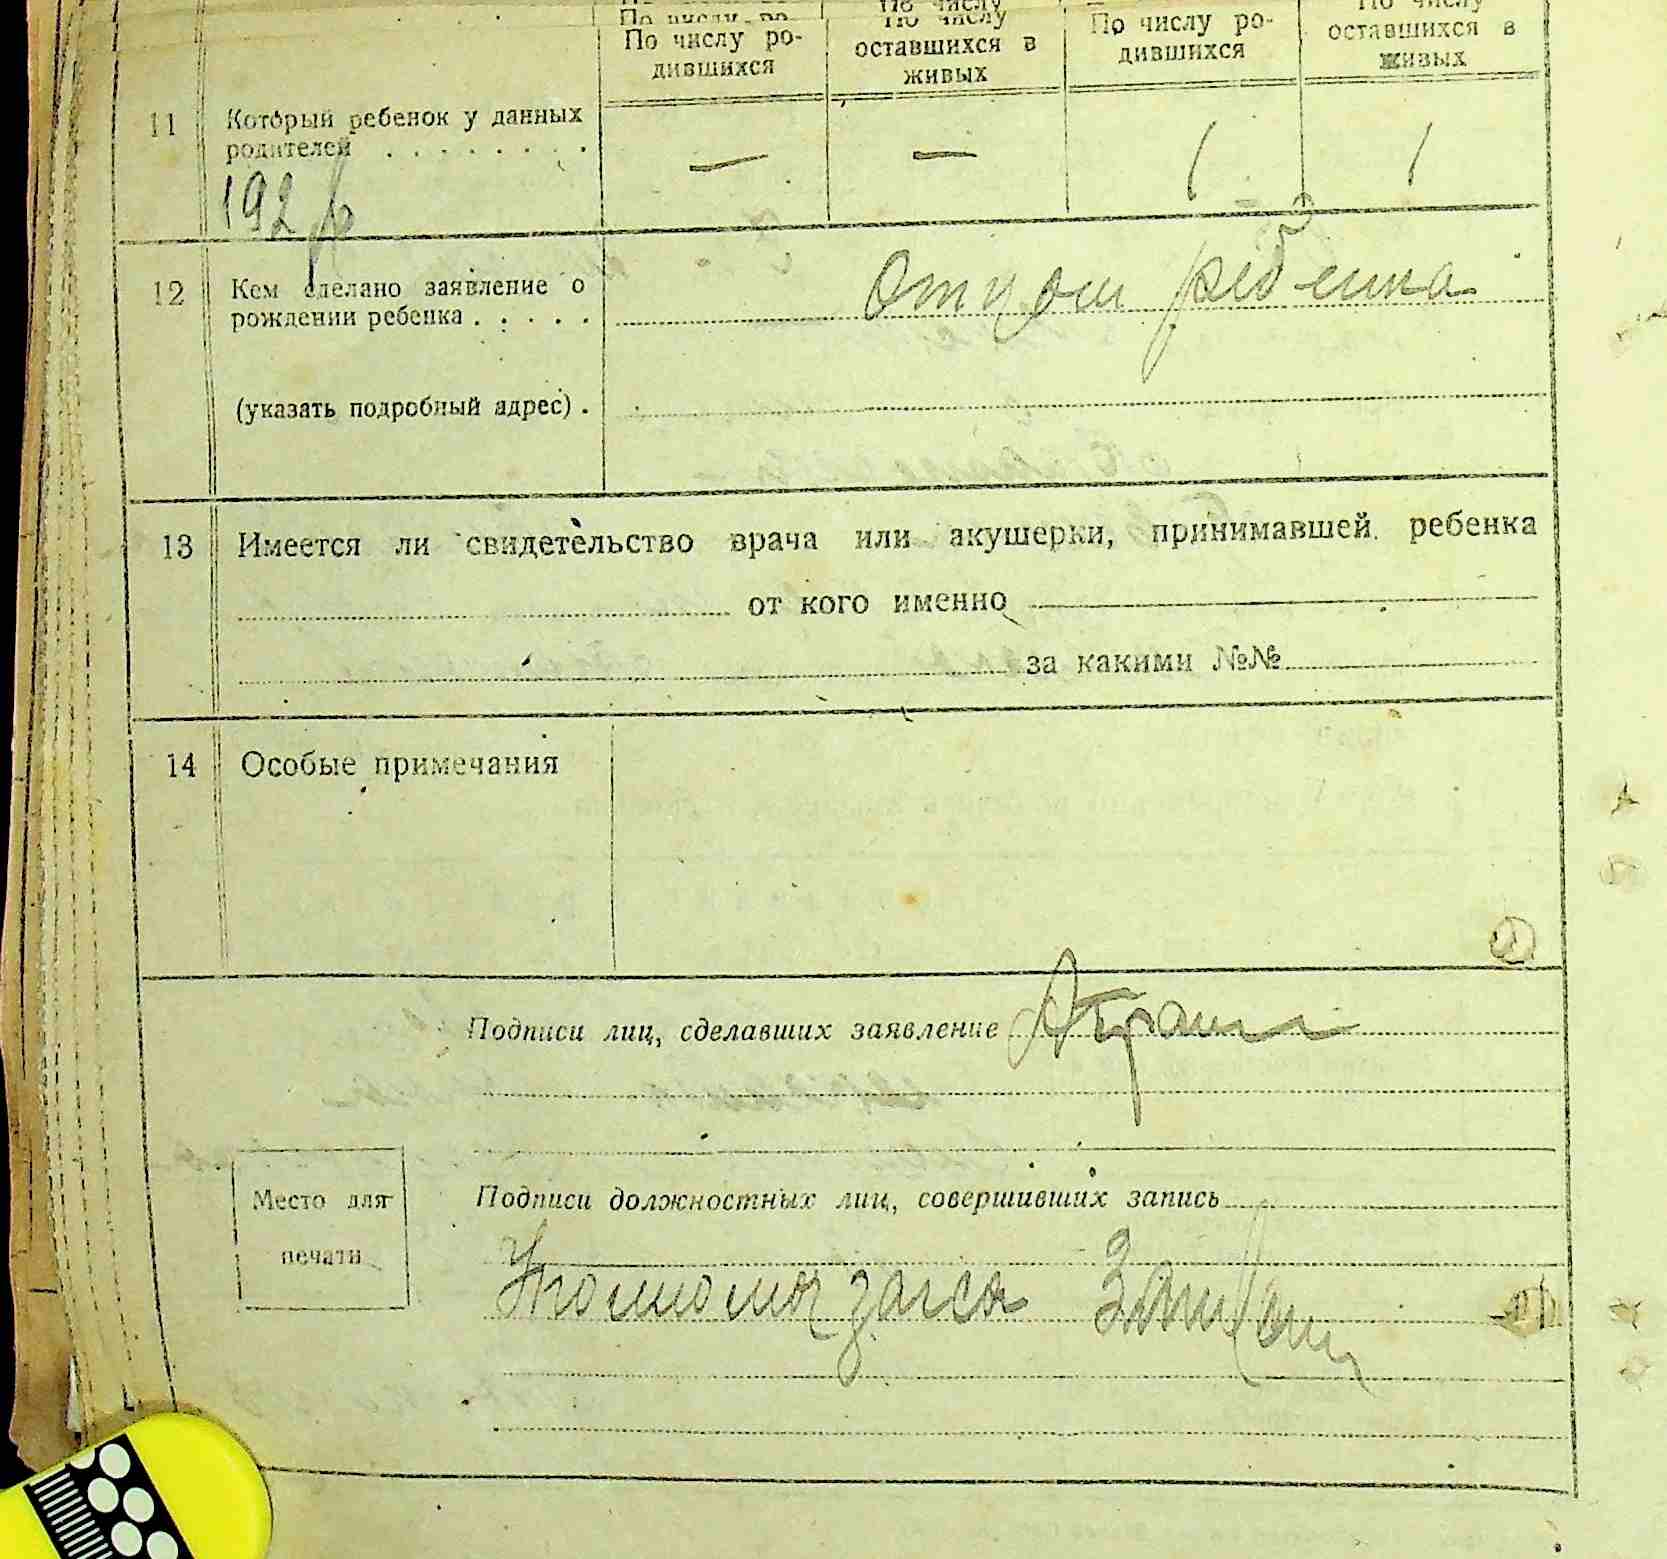 По числу ро- По числу По числу ро- По числу
дившихся оставшихся в дившихся оставшихся в
живых живых
11 Который ребенок у данных
родителей . . . . . . . . — — 1 1
192
12 Кем сделано заявление о
рождении ребенка . . . . . Отцом ребенка
(указать подробный адрес) .
13 Имеется ли свидетельство врача или акушерки, принимавшей ребенка
от кого именно
за какими №№
14 Особые примечания
Подписи лиц, сделавших заявление
Место для
печати
Подписи должностных лиц, совершивших запись
загса